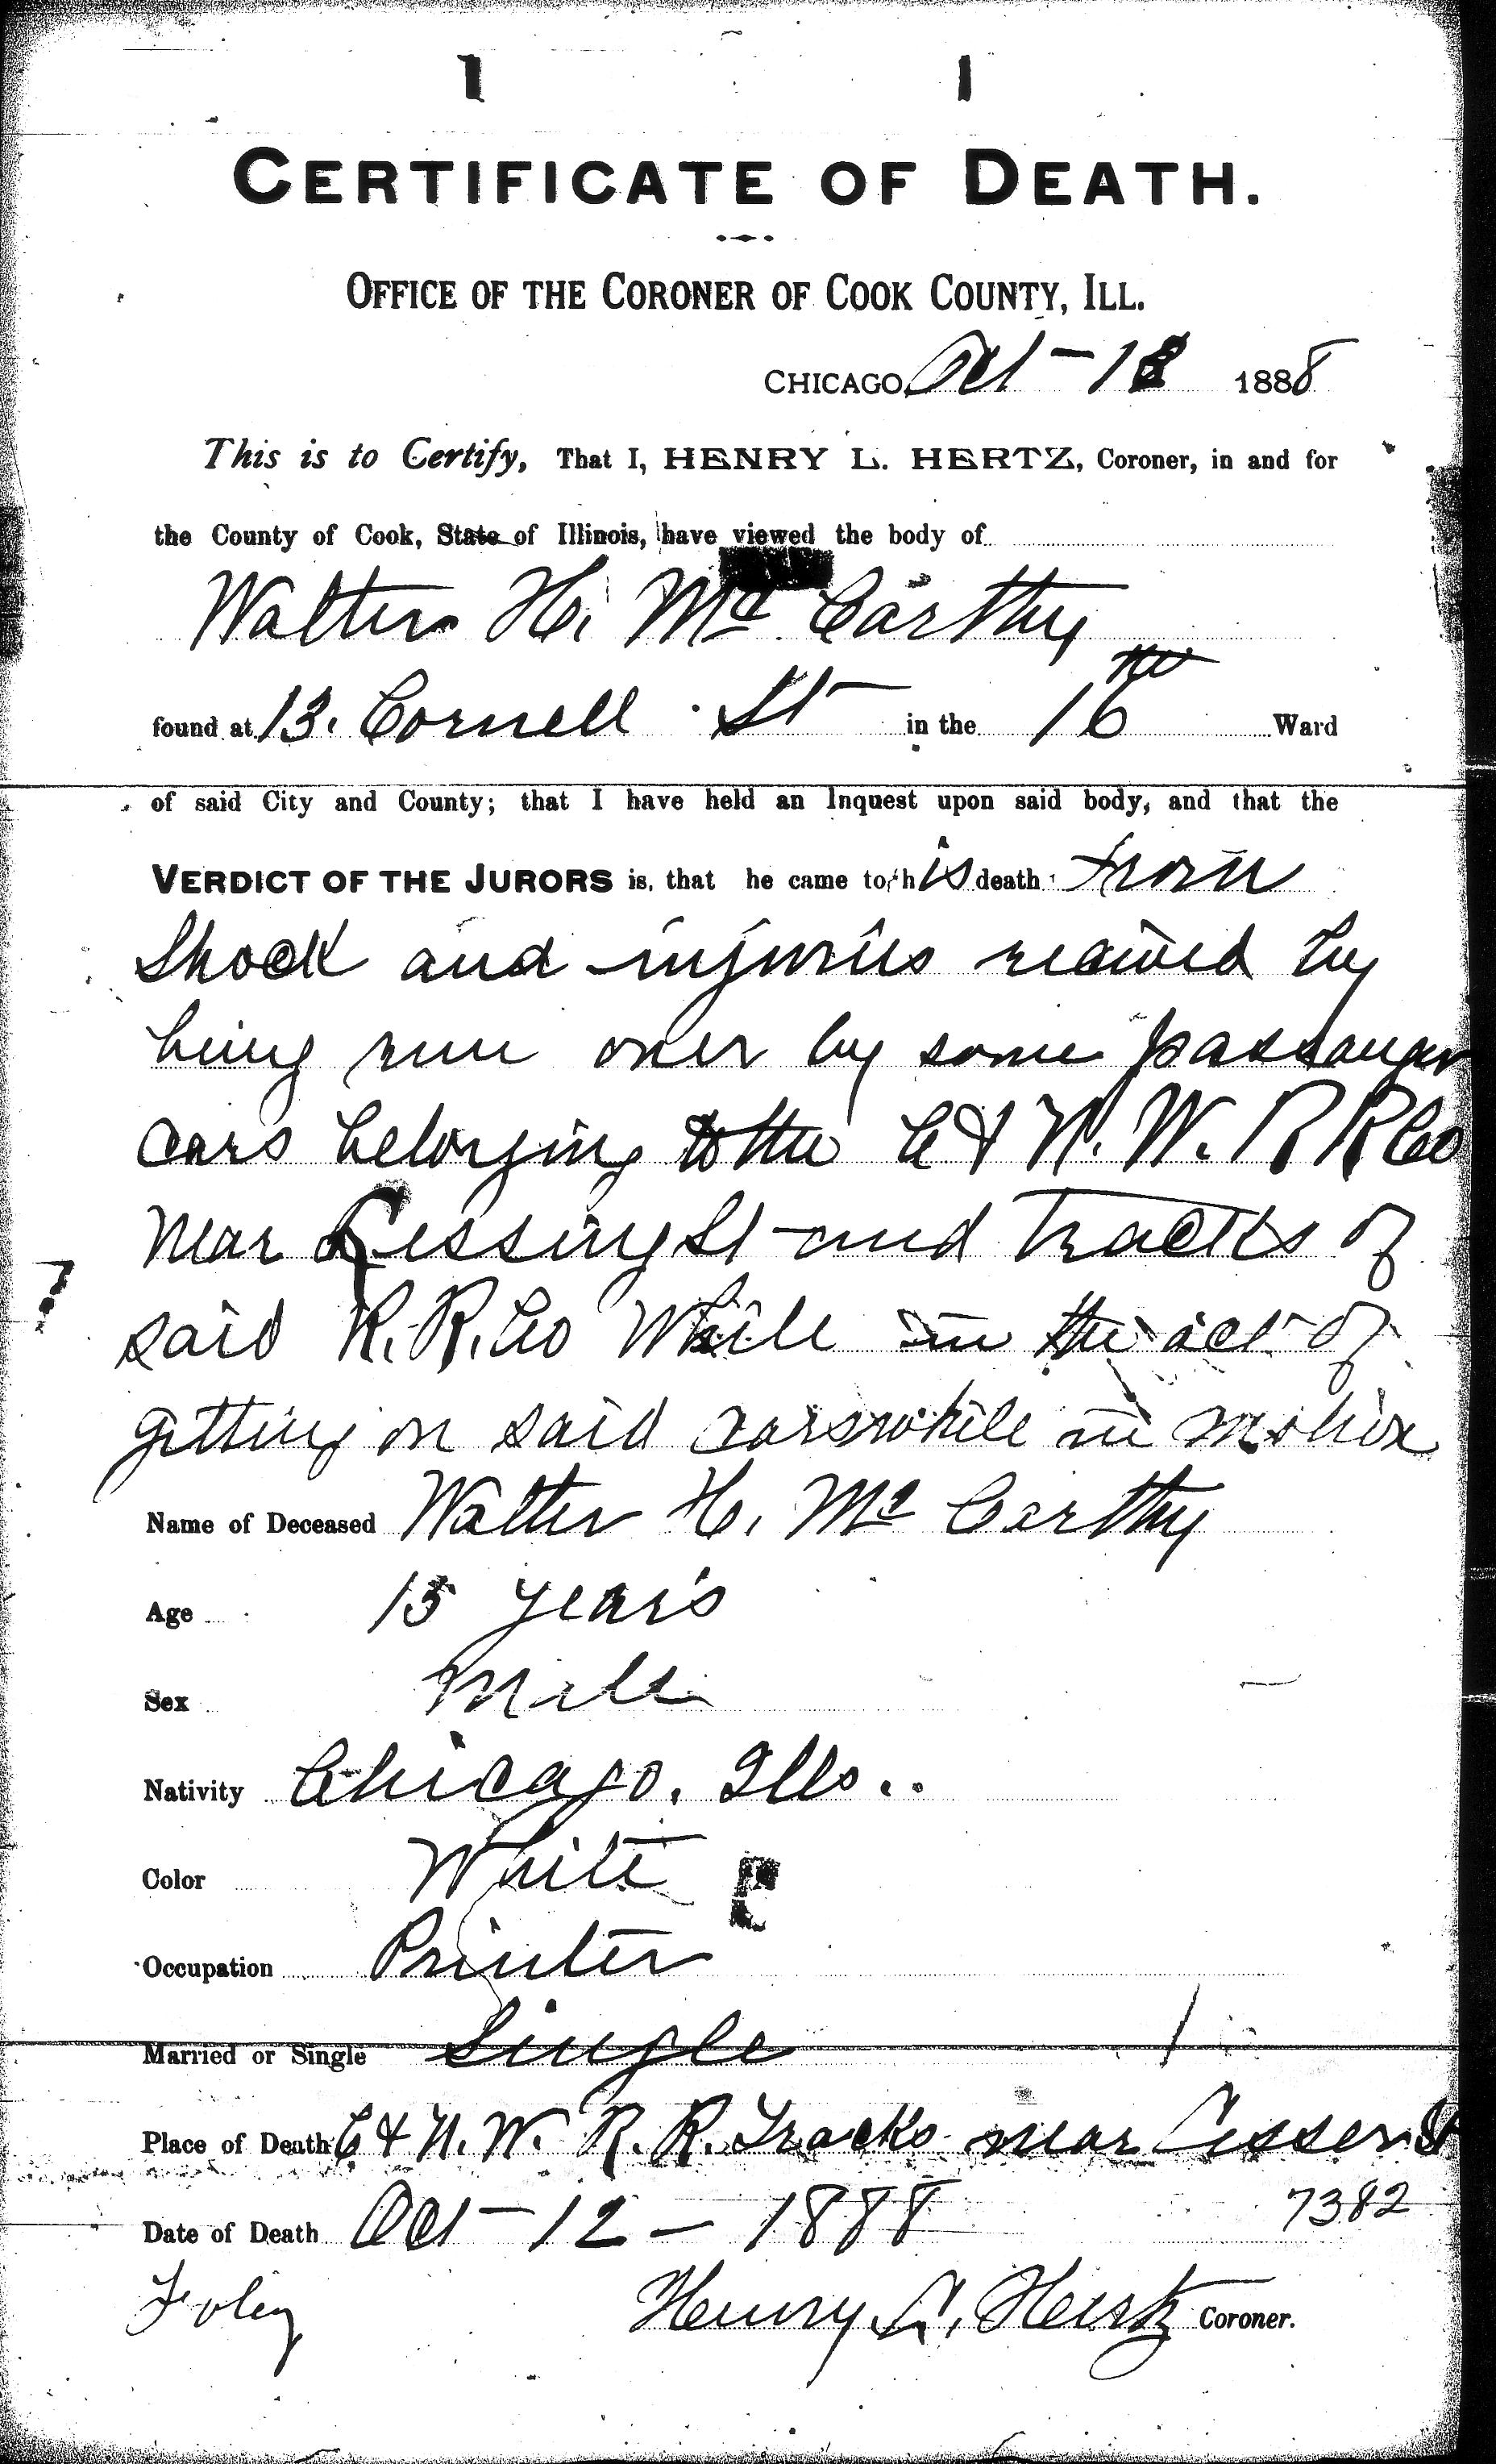 CERTIFICATE OF DEATH.
OFFICE OF THE CORONER OF COOK COUNTY, ILL.
CHICAGO, Oct - 18 1888
This is to Certify, That I, HENRY L. HERTZ, Coroner, in and for
the County of Cook, State of Illinois, have viewed the body of
Walter H. Mc Carthy
found at 13. Cornell St in the 16th Ward
of said City and County; that I have held an Inquest upon said body, and that the
VERDICT OF THE JURORS is, that he came to his death from
Shock and injuries received by
being run over by some passanger
cars belonging to the C & N. W. R R Co
near Lessing St and Tracks of
said R. R. Co While in the act of
getting on said cars while in motion
Name of Deceased Walter H. Mc Carthy
Age 15 years
Sex Male
Nativity Chicago. Ills.
Color White
Occupation Printer
Married or Single Single
Place of Death C & N. W. R. R. Tracks near St
Date of Death Oct - 12 - 1888
7382
Foley Henry L. Hertz Coroner.